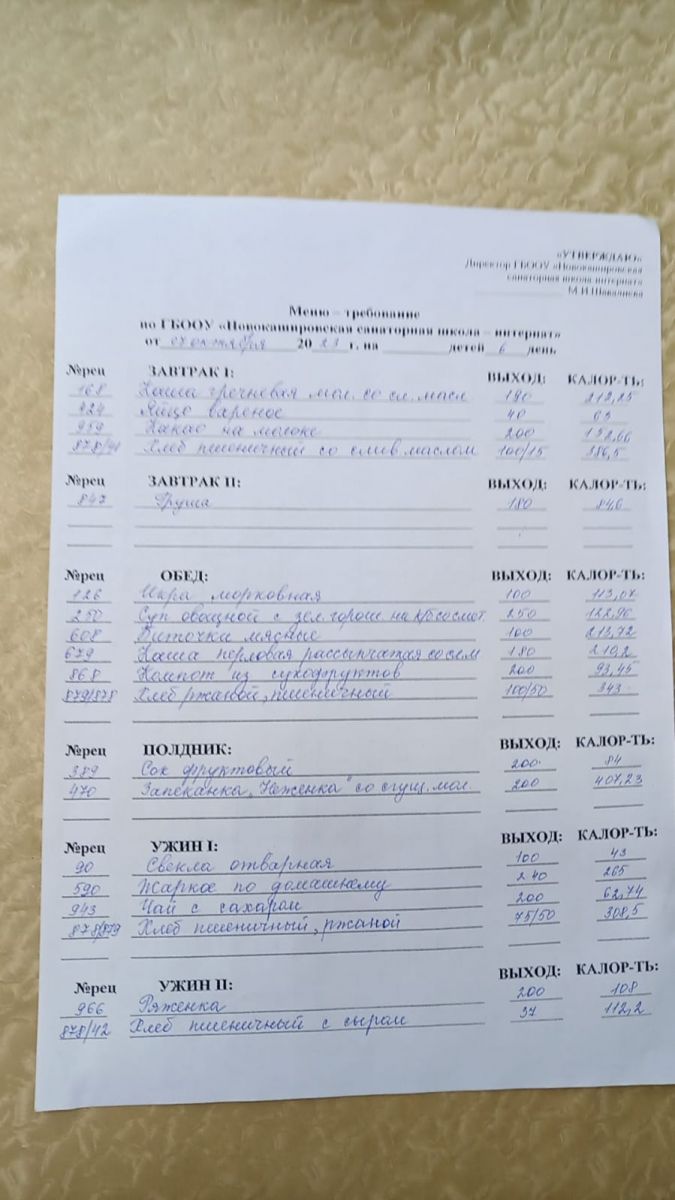 «УТВЕРЖДАЮ»
Директор ГБООУ «Новокашировская
санаторная школа-интернат»
М.И.Шакалиева
Меню – требование
по ГБООУ «Новокашировская санаторная школа – интернат»
от 07 октября 2023 г. на детей 6 день
№рец ЗАВТРАК I: ВЫХОД: КАЛОР-ТЬ:
168 Каша гречневая мол. со сл. масл 190 212,25
424 Яйцо вареное 40 63
959 Какао на молоке 200 152,66
878/41 Хлеб пшеничный со слив маслом 100/15 386,5
№рец ЗАВТРАК II: ВЫХОД: КАЛОР-ТЬ:
847 Груша 180 84,6
№рец ОБЕД: ВЫХОД: КАЛОР-ТЬ:
126 Икра морковная 100 113,07
250 Суп овощной с зел. горош. на к/б со смет. 250 122,90
608 Биточки мясные 100 213,72
679 Каша перловая рассыпчатая со слм 180 210,2
868 Компот из сухофруктов 200 93,45
879/878 Хлеб ржаной, пшеничный 100/50 343
№рец ПОЛДНИК: ВЫХОД: КАЛОР-ТЬ:
389 Сок фруктовый 200 84
470 Запеканка „Неженка" со сгущ. мол. 200 407,23
№рец УЖИН I: ВЫХОД: КАЛОР-ТЬ:
90 Свекла отварная 100 43
590 Жаркое по домашнему 240 265
943 Чай с сахаром 200 62,74
878/879 Хлеб пшеничный, ржаной 75/50 308,5
№рец УЖИН II: ВЫХОД: КАЛОР-ТЬ:
966 Ряженка 200 108
878/42 Хлеб пшеничный с сыром 37 112,2